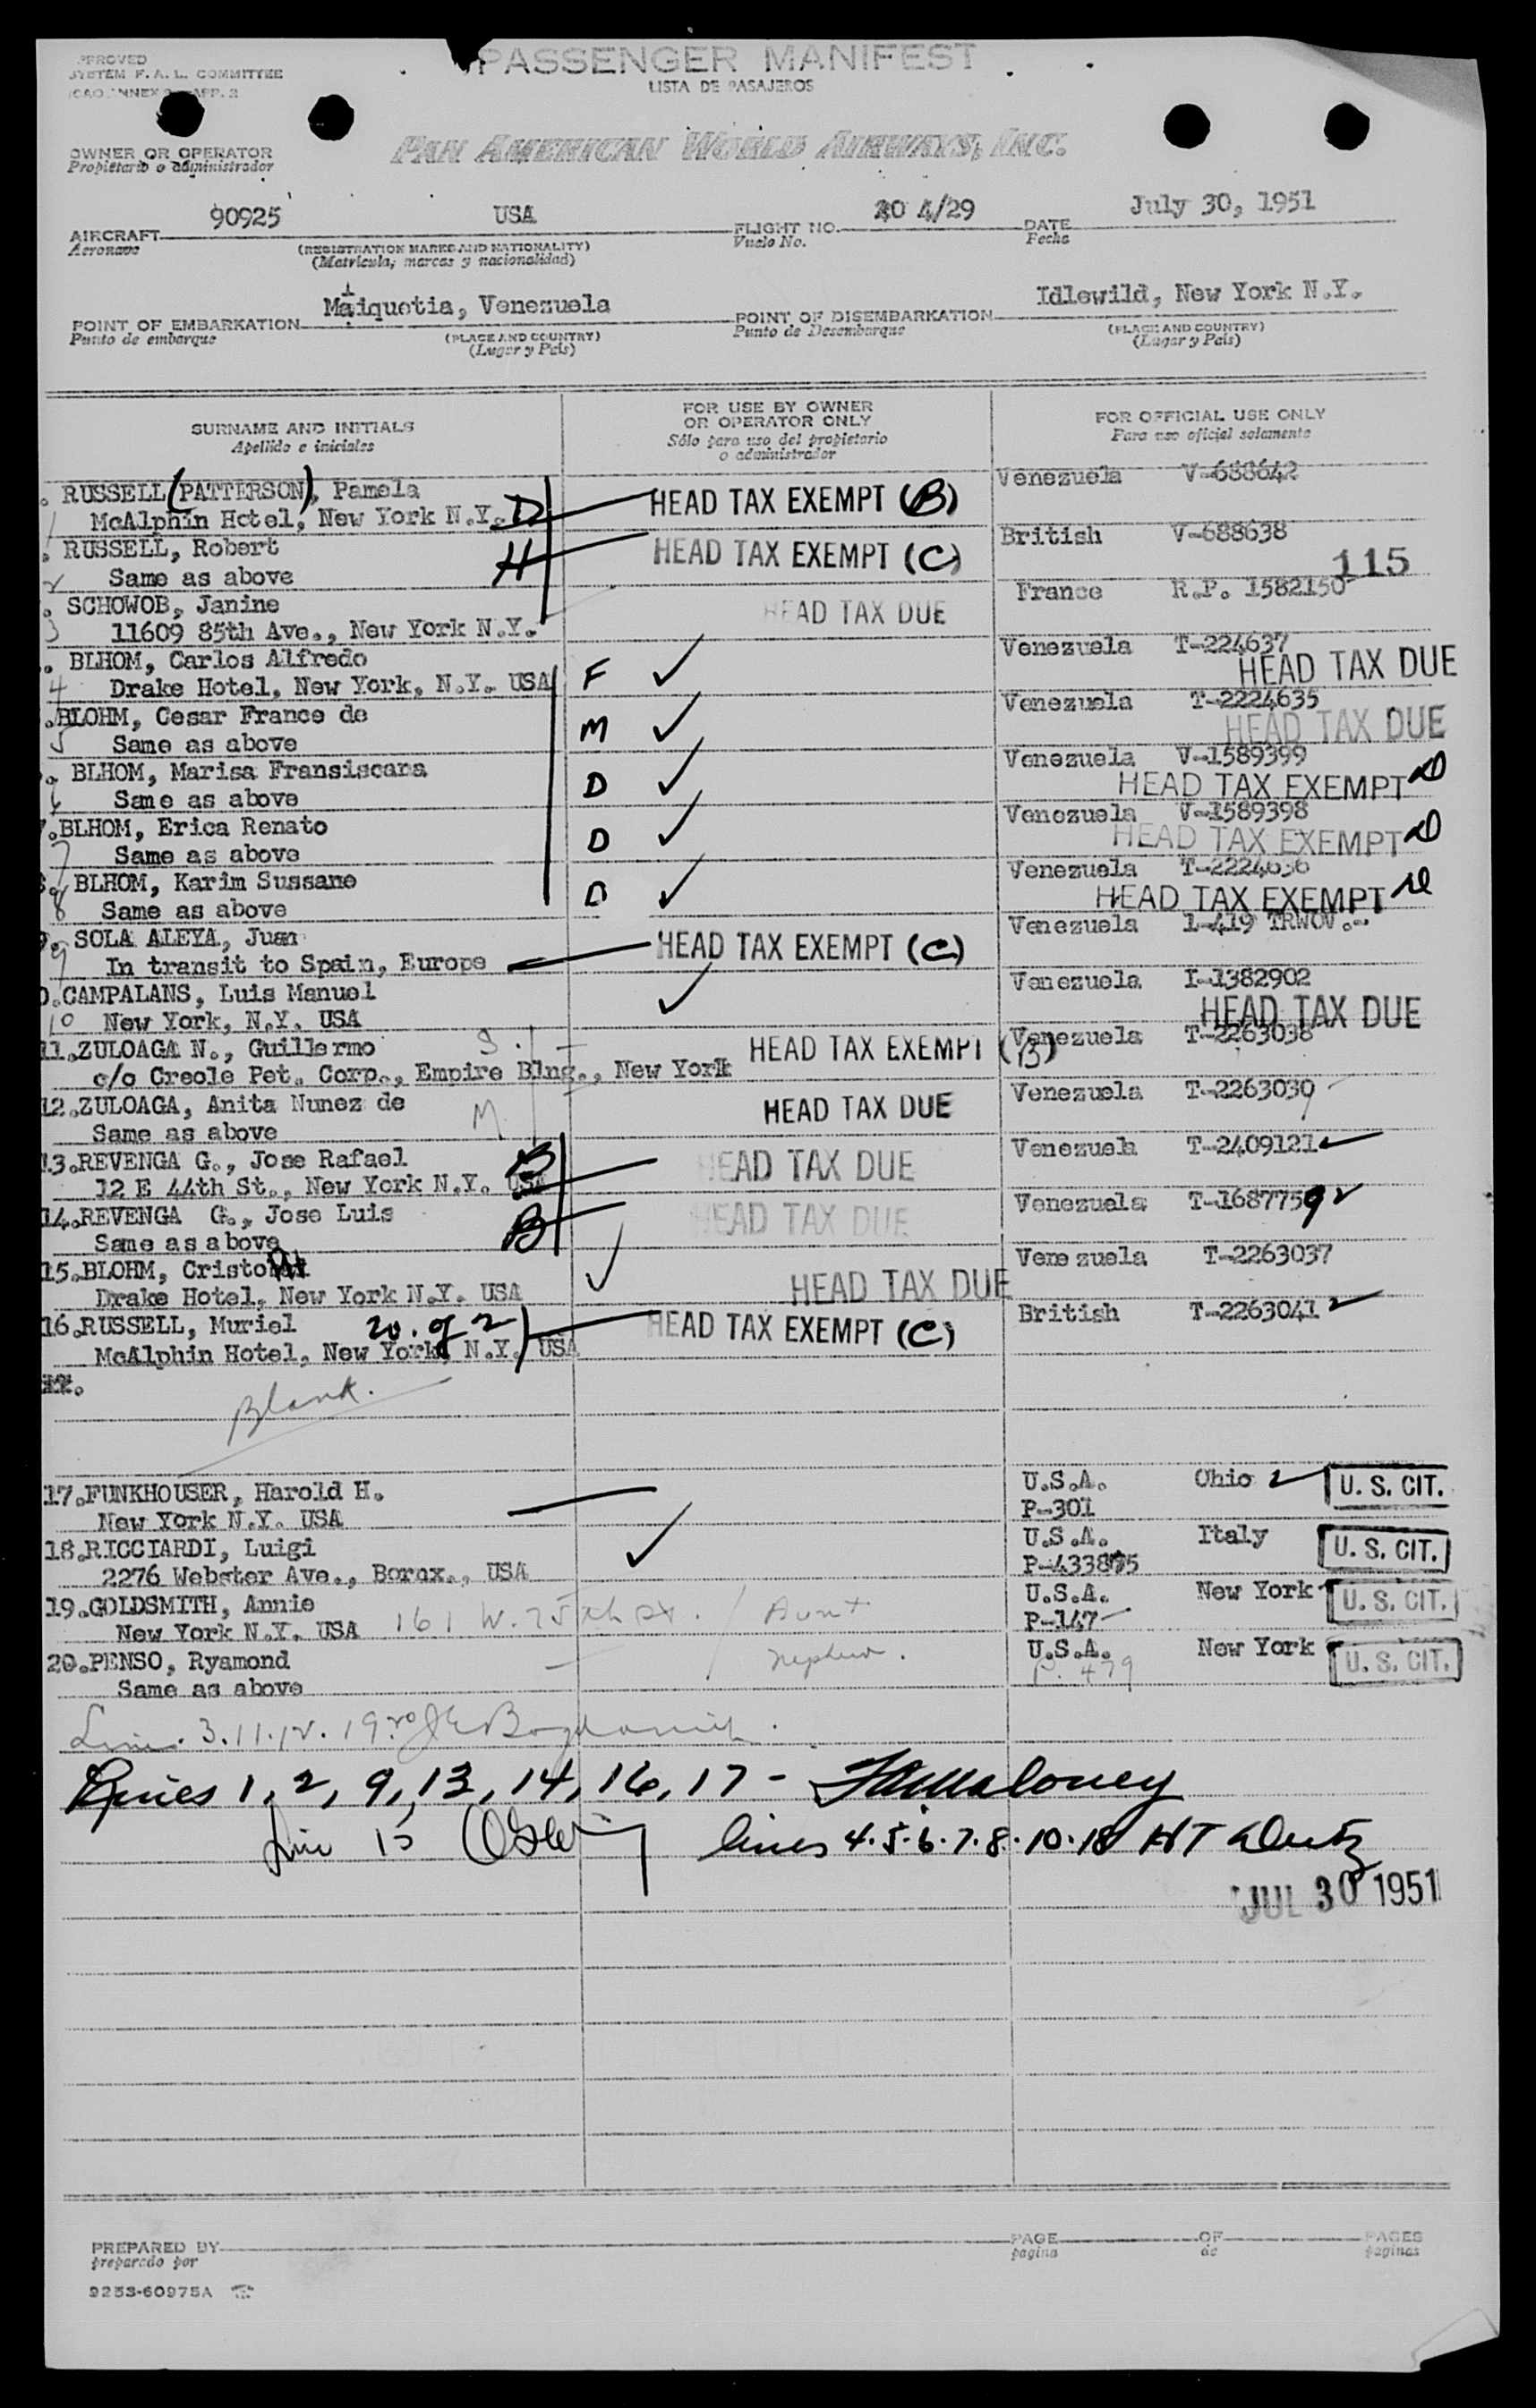 PASSENGER MANIFEST
LISTA DE PASAJEROS
PPROVED
SYSTEM F. A. L. COMMITTEE
ICAO ANNEX 9 APP. 2
OWNER OR OPERATOR
Propietario o administrador
PAN AMERICAN WORLD AIRWAYS, INC.
AIRCRAFT 90925 USA FLIGHT NO. 4/29 DATE July 30, 1951
Aeronave (REGISTRATION MARKS AND NATIONALITY) Vuelo No. Fecha
(Matricula, marcas y nacionalidad)
POINT OF EMBARKATION Maiquetia, Venezuela POINT OF DISEMBARKATION Idlewild, New York N.Y.
Punto de embarque (PLACE AND COUNTRY) Punto de Desembarque (PLACE AND COUNTRY)
(Lugar y Pais) (Lugar y Pais)
SURNAME AND INITIALS
Apellido e iniciales
FOR USE BY OWNER
OR OPERATOR ONLY
Sólo para uso del propietario
o administrador
FOR OFFICIAL USE ONLY
Para uso oficial solamente
. RUSSELL (PATTERSON), Pamela HEAD TAX EXEMPT (B) Venezuela V-688642
1 McAlphin Hotel, New York N.Y. D
. RUSSELL, Robert H HEAD TAX EXEMPT (C) British V-688638
2 Same as above 115
. SCHOWOB, Janine HEAD TAX DUE France R.P. 1582150
3 11609 85th Ave., New York N.Y.
. BLHOM, Carlos Alfredo F ✓ Venezuela T-224637
4 Drake Hotel, New York, N.Y. USA HEAD TAX DUE
.BLOHM, Cesar France de M ✓ Venezuela T-2224635
5 Same as above HEAD TAX DUE
. BLHOM, Marisa Fransiscara D ✓ Venezuela V-1589399
6 Same as above HEAD TAX EXEMPT
7.BLHOM, Erica Renato D ✓ Venezuela V-1589398
7 Same as above HEAD TAX EXEMPT
. BLHOM, Karim Sussane D ✓ Venezuela T-2224636
8 Same as above HEAD TAX EXEMPT
9. SOLA ALEYA, Juan HEAD TAX EXEMPT (C) Venezuela 1-419 TRWOV.
9 In transit to Spain, Europe
0.CAMPALANS, Luis Manuel ✓ Venezuela I-1382902
10 New York, N.Y. USA HEAD TAX DUE
11.ZULOAGA N., Guillermo HEAD TAX EXEMPT (B) Venezuela T-2263038
c/o Creole Pet. Corp., Empire Blng., New York
12.ZULOAGA, Anita Nunez de M HEAD TAX DUE Venezuela T-2263039
Same as above
13.REVENGA G., Jose Rafael B HEAD TAX DUE Venezuela T-2409121
12 E 44th St., New York N.Y. USA
14.REVENGA G., Jose Luis B HEAD TAX DUE Venezuela T-1687759
Same as above
15.BLOHM, Cristobal ✓ HEAD TAX DUE Venezuela T-2263037
Drake Hotel, New York N.Y. USA
16.RUSSELL, Muriel 20. of 2 HEAD TAX EXEMPT (C) British T-2263041
McAlphin Hotel, New York, N.Y. USA
Blank.
17.FUNKHOUSER, Harold H. U.S.A. Ohio U. S. CIT.
New York N.Y. USA P-301
18.RICCIARDI, Luigi ✓ U.S.A. Italy U. S. CIT.
2276 Webster Ave., Borax., USA P-433875
19.GOLDSMITH, Annie Aunt U.S.A. New York U. S. CIT.
New York N.Y. USA 161 W. 75th st. P-147
20.PENSO, Ryamond nephew. U.S.A. New York U. S. CIT.
Same as above P. 479
Lines 3.11.12.19
Lines 1, 2, 9, 13, 14, 16, 17 - Maloney
Line 15 lines 4.5.6.7.8.10.18
JUL 30 1951
PREPARED BY PAGE OF PAGES
preparado por pagina de paginas
9253-60975A